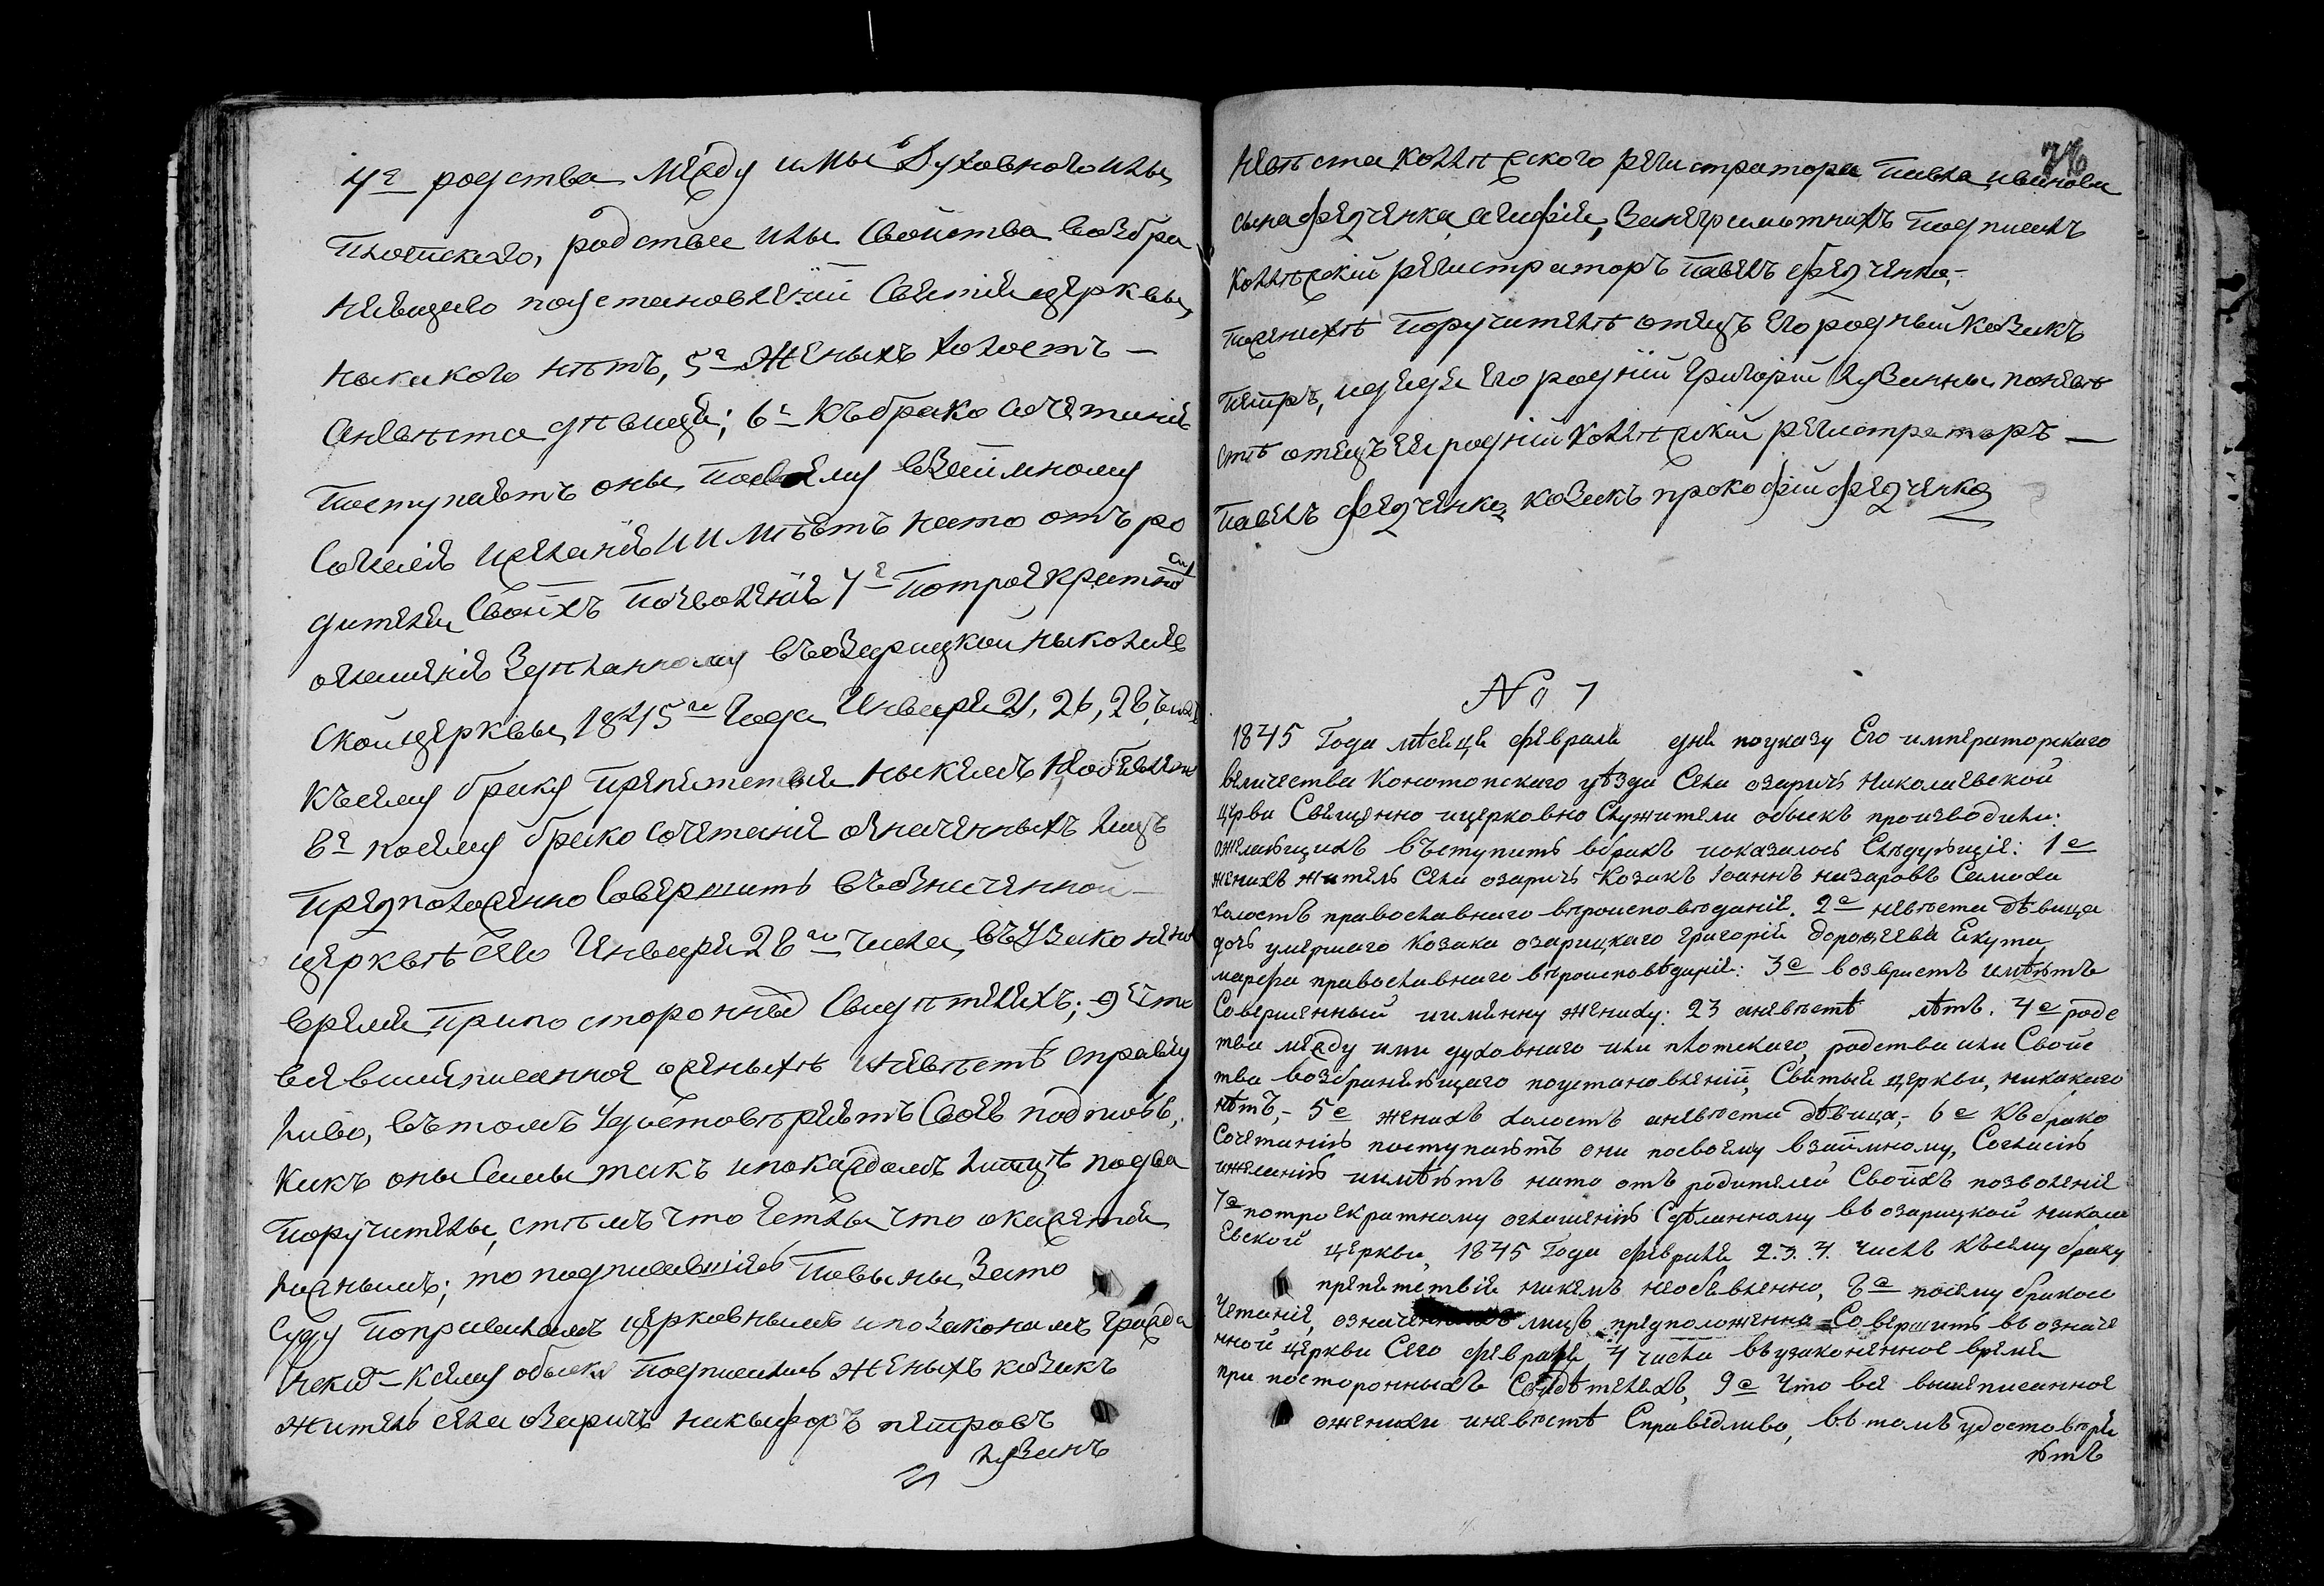 4е родства между имы Духовного илы
плотскаго, родствее илы Свойства возбра
няющаго поустановленiй Святiй церквы,
ныкакого нѣтъ, 5е Женыхъ холостъ —
Аневѣста дѣвица; 6е Къбрако Сочетанiю
Поступаютъ оны посвоему взаймному
Согласiю ижеланiю иимѣютъ нато отъ ро
дителей Своихъ позволенiе 7е Потроекратно
му
оглашенiю Здѣланному въозарицкой ныколаев
ской церквы, 1845го Года Января 21, 26, 28, числъ
Късему браку Препятствiя ныкемъ необявлено
8е посему брако Сочетанiе означенныхъ лицъ
Предположенно Совершить въозначенной —
церквѣ Сего Января 28го числа, въузаконенно
время припосторонныхъ Свидѣтеляхъ; 9е Что
все вышеписанное оженыхѣ иневѣстѣ справед
ливо, въ томъ удостовѣряютъ Своею подписью,
Какъ оны Самы такъ ипокаждомъ лицѣ подва
поручителы, стѣмъ что Естлы что окажется
ложнымъ; то подписавшiесь Повынны Зато
Суду поправиламъ церковнымъ ипозаконамъ гражда
нскимъ — Ксему обыску Подписались Женыхъ козакъ
житель села озаричъ никыфоръ петровъ
лузанъ
76
невѣста коллѣжского регистратора Павла иванова
сына федченка, агафiя, занеграмотныхъ Подписалъ
коллѣжскiй регистраторъ павелъ федченко,
поженихѣ поручителѣ отецъ Его родный козакъ
петръ, идядя Его роднiй григорiй лузанны поневѣ
стѣ отецъ Ея роднiй коллѣжскiй регистраторъ —
павелъ федченко, козакъ прокофiй федченко
№ 7
1845 Года мѣсяца февраля дня поуказу Его императорскаго
величества Конотопскаго уѣзда Села озаричъ Николаевской
церкви Священно ицерковно Служители обыскъ производили:
ожелающихъ въступить вбракъ иоказалось Слѣдующiе: 1е
женихъ житель Села озаричъ Козакъ Iоаннъ назаровъ Самоха
холостъ православнаго вѣроисповѣданiя. 2е невѣста дѣвица
дочь умершаго Козака озарицкаго григорiя дорофеева Екута
марфа православнаго вѣроисповѣданiя: 3е возврастъ имѣютъ
Совершенный иименну жениху: 23 аневѣстѣ лѣтъ. 4е родс
тва между ими духовнаго или плотскаго, родства или Свойс
тва возбраняющаго поустановленiй, Святыя церкви, никакаго
нѣтъ, — 5е женихъ холостъ аневѣста дѣвица, — 6е Къбрако
Сочетанiю поступаютъ они посвоему взаймному, Согласiю
ижеланiю иимѣютъ нато отъ родителей Своихъ позволенiе
7е потроекратному оглашенiю Сдѣланному въ озарицкой никола
Евской церкви, 1845 Года февраля 2. 3. 4. числъ късему браку
препятствiя никемъ необявленно, 8е посему бракосо
четанiе, означенныхъ лицъ предположенна Совершить въ означе
нной церкви Сего февраля 4 числа въузаконенное время
при посторонныхъ Свидѣтеляхъ, 9е Что все вышеписанное
оженихи иневѣстѣ Справедливо, въ томъ удостовѣря
ютъ